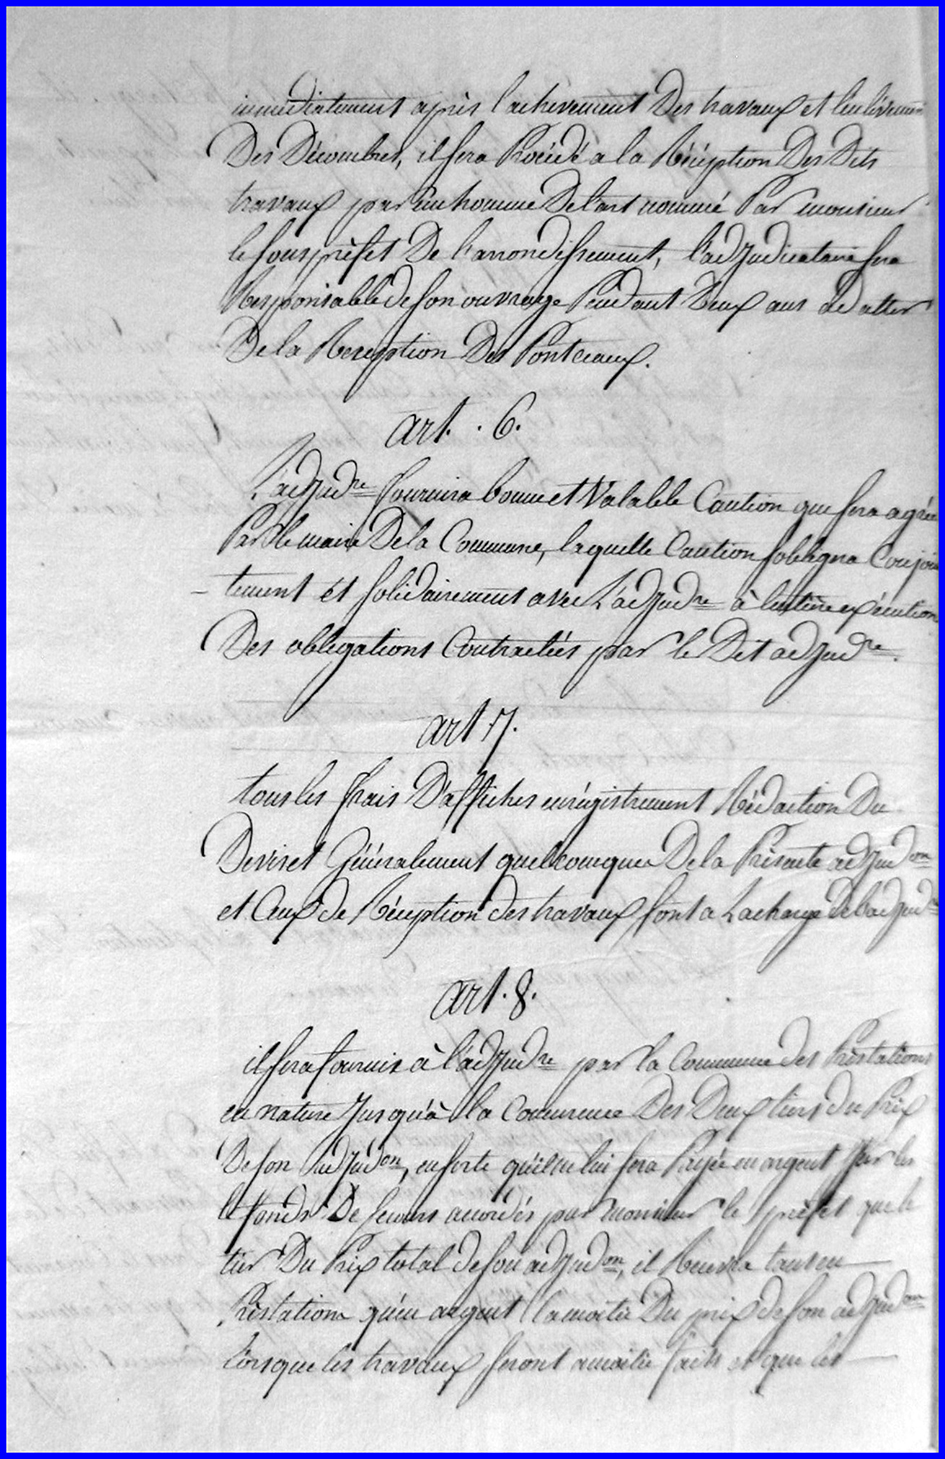 immediatement après l'achevement Des travaux et l'enlèvemen
Des Décombres, il sera Procédé a la Réception Des Dits
travaux par un homme De l'art nommé Par monsieur
le sous préfet De l'arrondissement, l'adjudicataire sera
Responsable de son ouvrage Pendant Deux ans a datter
De la Reception Des Ponteaux.
art. 6.
L'adjud.re fournira bonne et Valable Caution que sera agréé
Par le maire De la Commune, laquelle Caution s'obligera Conjoin
tement et solidairement avec L'adjud.re à l'entière exécution
Des obligations Contractées par le Dit adjud.re.
art 7.
tous les frais D'affiches enrégistrement Rédaction Du
Devis et Généralement quelconque De la Présente adjud.on
et Ceux de Réception des travaux sont a La charge De l'adjud.re
art. 8.
il sera fournis à l'adjud.re par la Commune des Prestations
en nature Jusqu'à la Concurence Des Deux tiers du Prix
De son adjud.on, en sorte qu'il ne lui sera Payée en argent sur les
fonds De secours accordés par Monsieur le préfet que le
tier Du Prix total de son adjud.on, il Recevra tant en
Préstations qu'en argent la moitie Du prix de son adjud.on
lorsque les travaux seront a moitié faits et que les